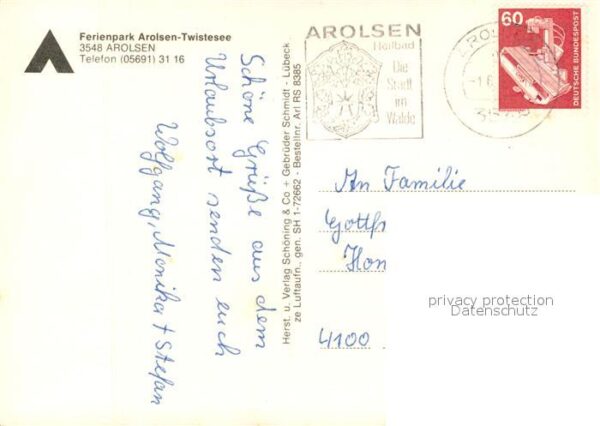 Ferienpark Arolsen-Twistesee
3548 AROLSEN
Telefon (05691) 31 16
Schöne Grüße aus dem
Urlaubsort senden euch
Wolfgang, Monika + Stefan
Herst. u. Verlag Schöning & Co + Gebrüder Schmidt - Lübeck
ze Luftaufn., gen. SH 1-72662 - Bestellnr. Arl RS 8385
AROLSEN
Heilbad
Die
Stadt
im
Walde
60
DEUTSCHE BUNDESPOST
An Familie
Gottfr
Hon
4100
privacy protection
Datenschutz